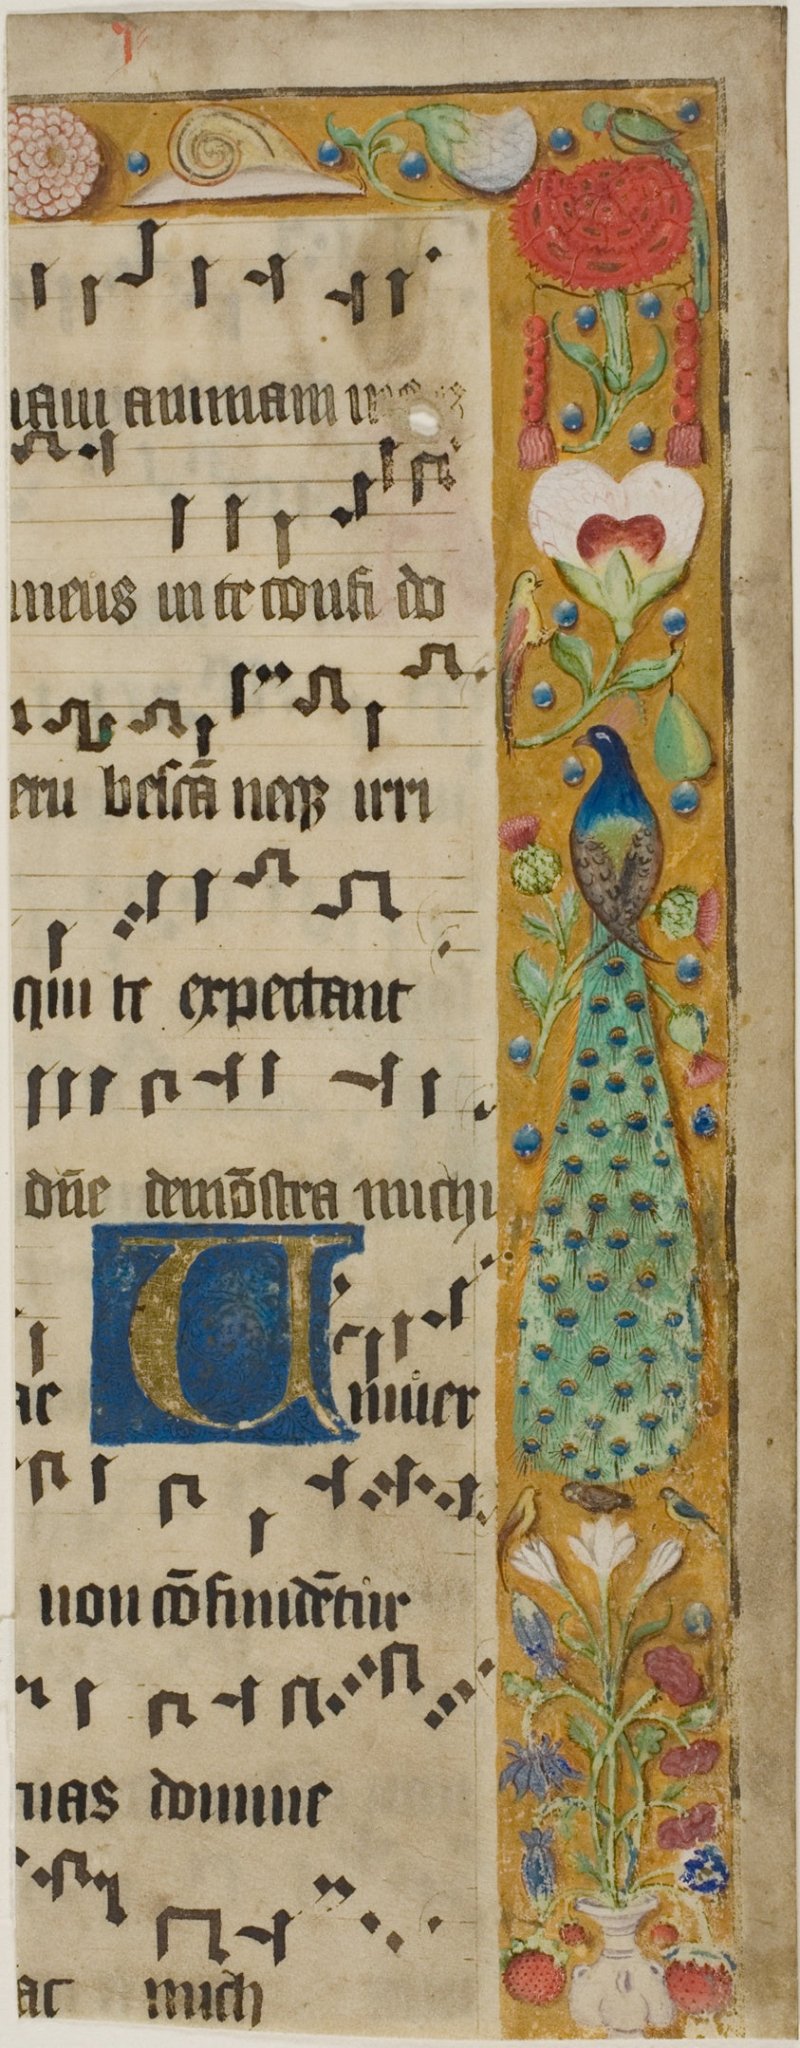 nam animam me
meus in te confi do
etn̄ vescā neqꝫ irri
qui te expectant
dn̄e demōstra michi
ac Univer
non cōfundētur
tuas domine
ac mich